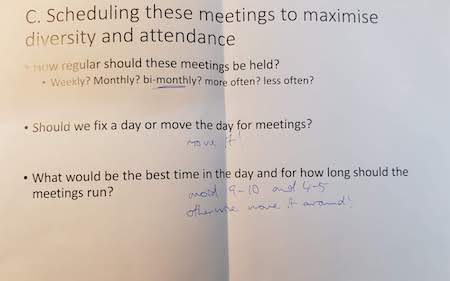 C. Scheduling these meetings to maximise
diversity and attendance
• How regular should these meetings be held?
• Weekly? Monthly? bi-monthly? more often? less often?
• Should we fix a day or move the day for meetings?
move it!
• What would be the best time in the day and for how long should the
meetings run?
avoid 9-10 and 4-5
otherwise move it around!